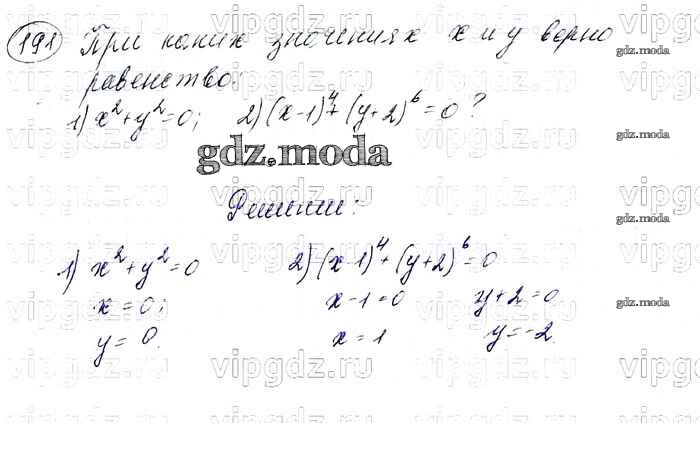 191 При каких значениях x и y верно
равенство:
1) x²+y²=0; 2) (x-1)⁴+(y+2)⁶=0?
gdz.moda
Решение:
1) x²+y²=0 2) (x-1)⁴+(y+2)⁶=0
x=0; x-1=0 y+2=0
y=0. x=1 y=-2
vipgdz.ru
gdz.moda